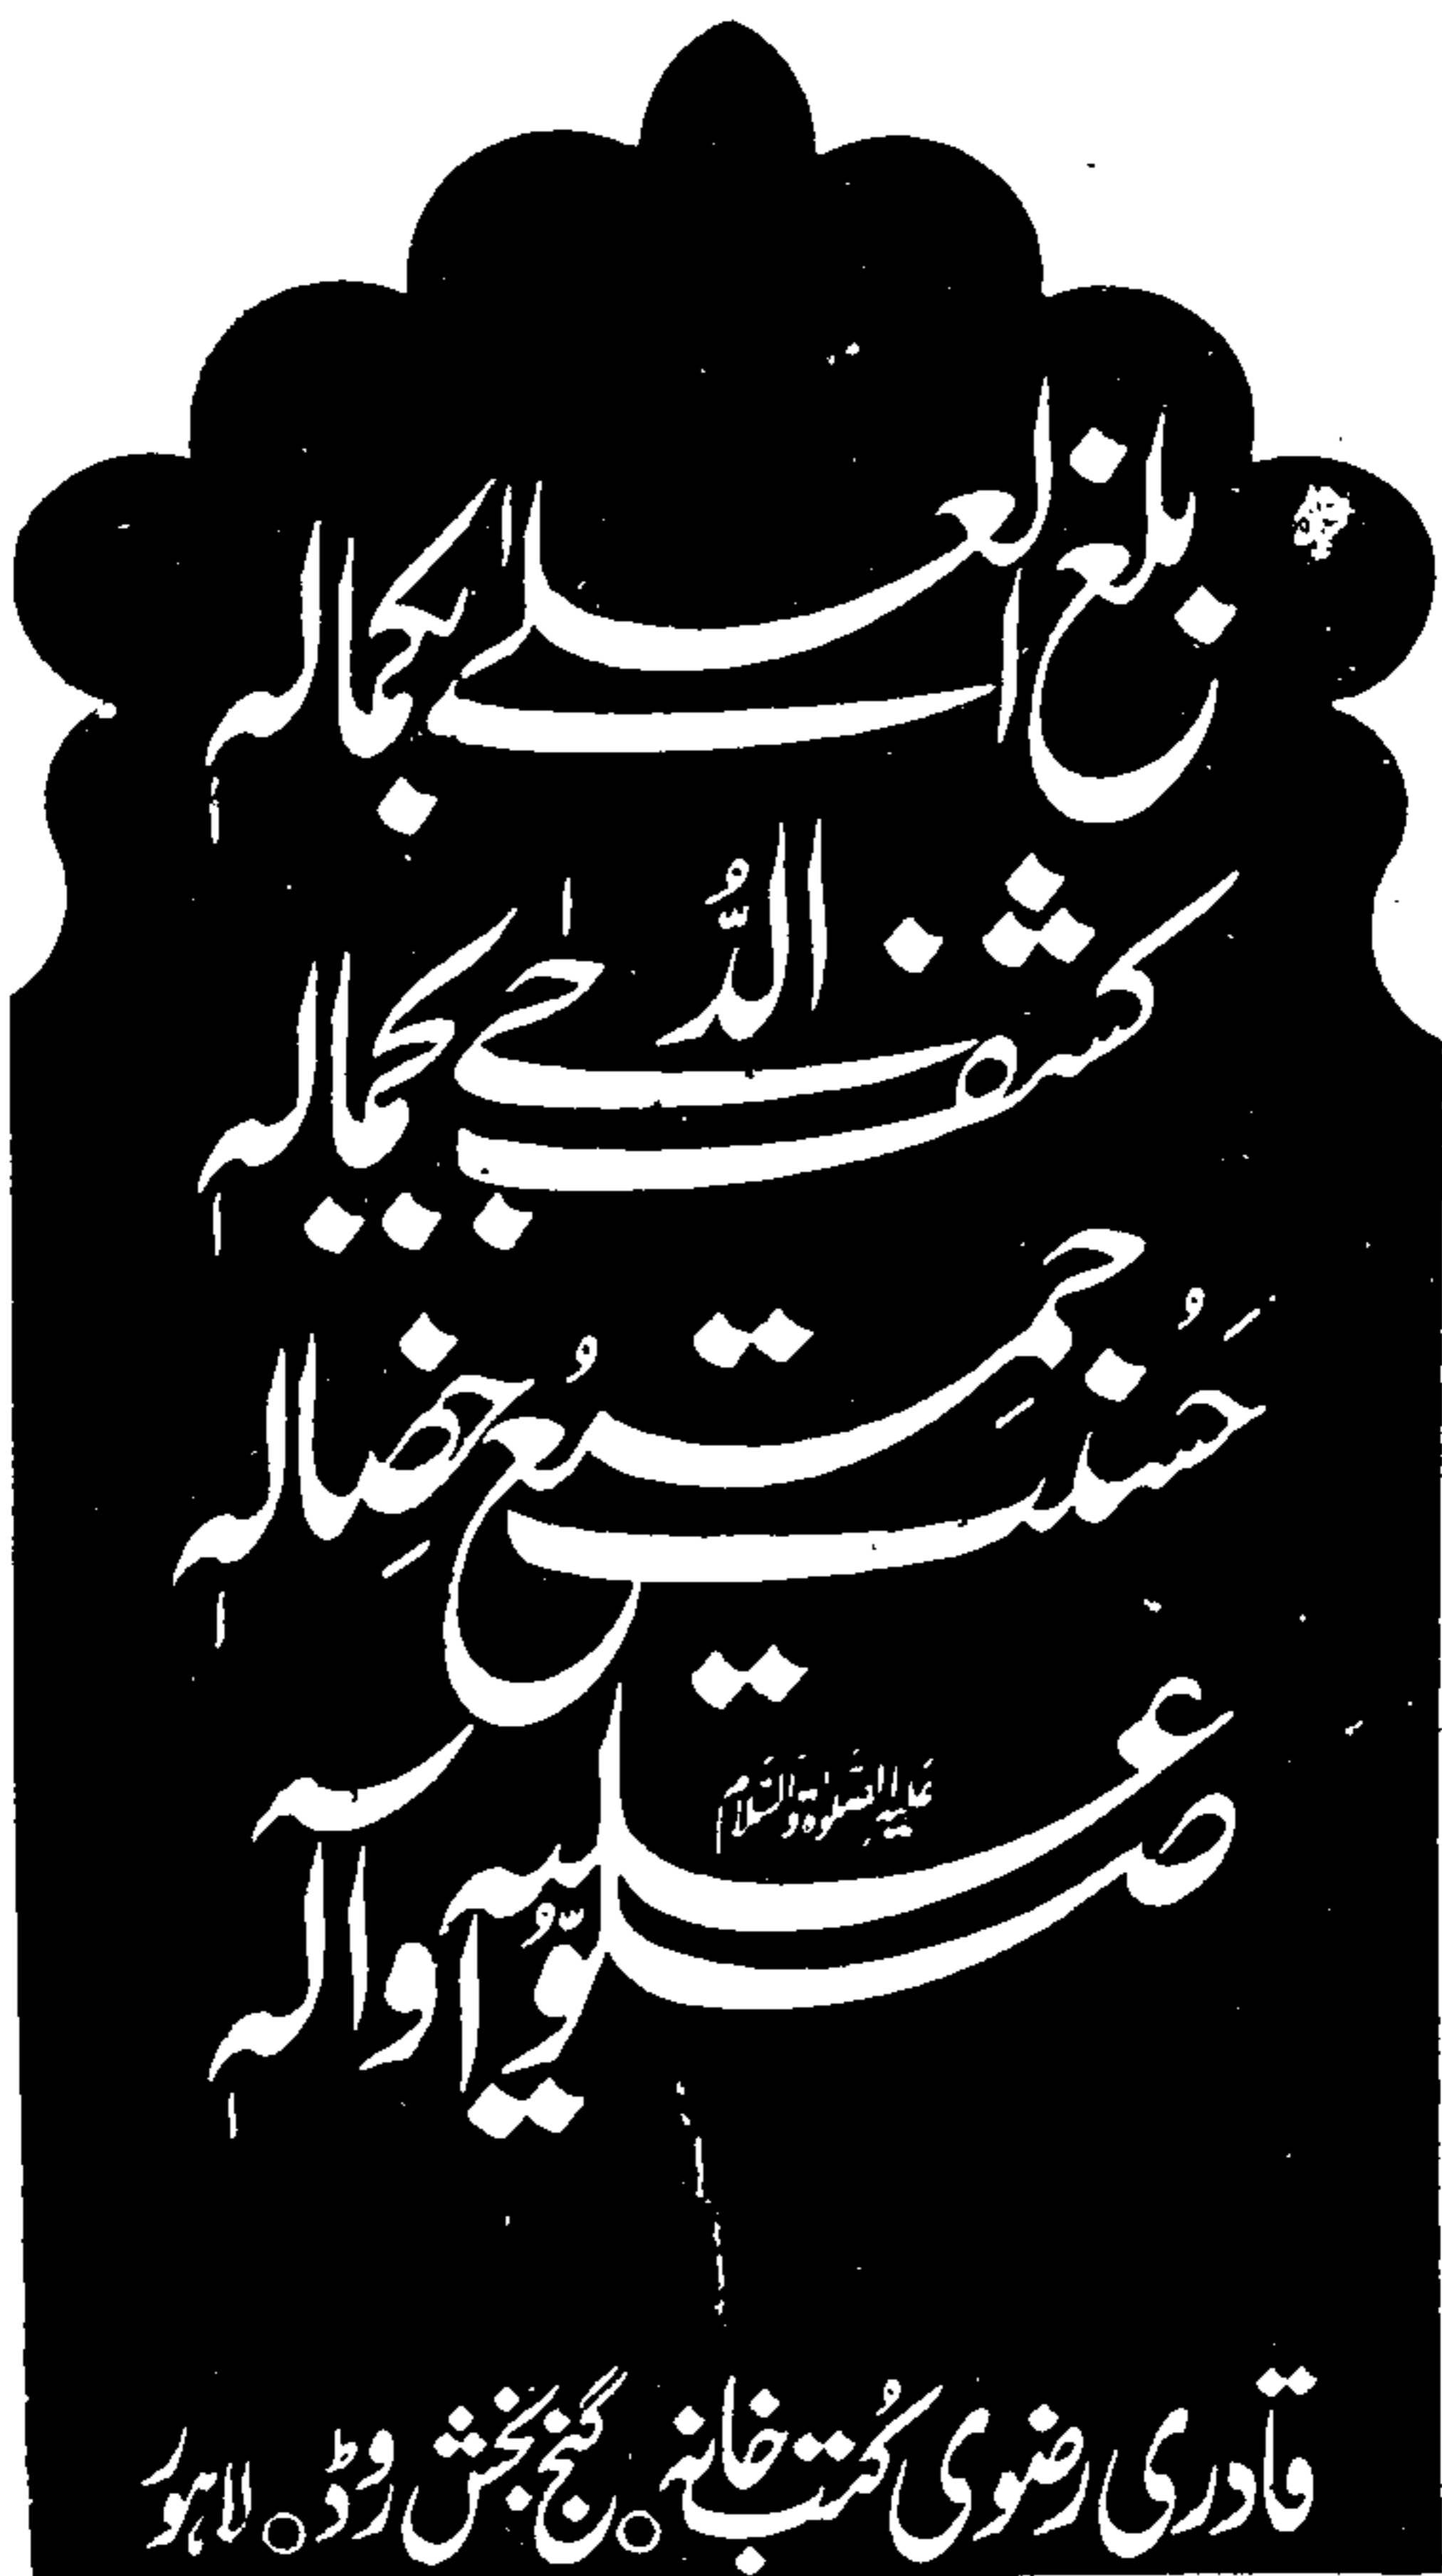 بلغ العلےٰ بکمالہٖ
کشف الدُّجےٰ بجمالہٖ
حَسُنت جمِیعُ خِصالہٖ
صلّوُا علیہ وآلہٖ
علیہ الصلوٰۃ والسلام
قادری رضوی کُتب خانہ ○ گنج بخش روڈ ○ لاہور